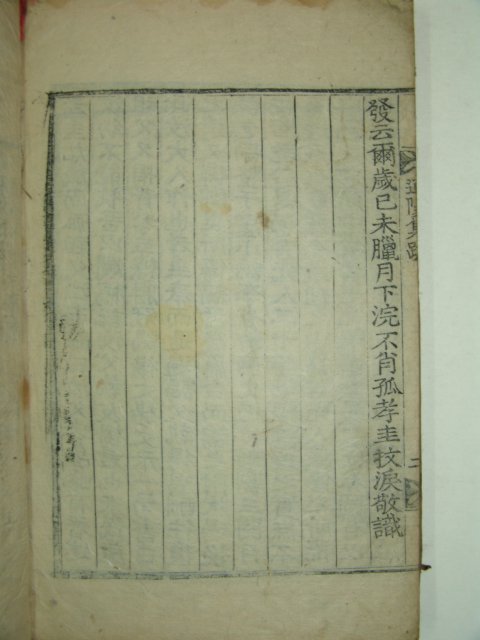 發云爾歲己未臘月下浣不肖孤孝圭抆淚敬識
集跋
二